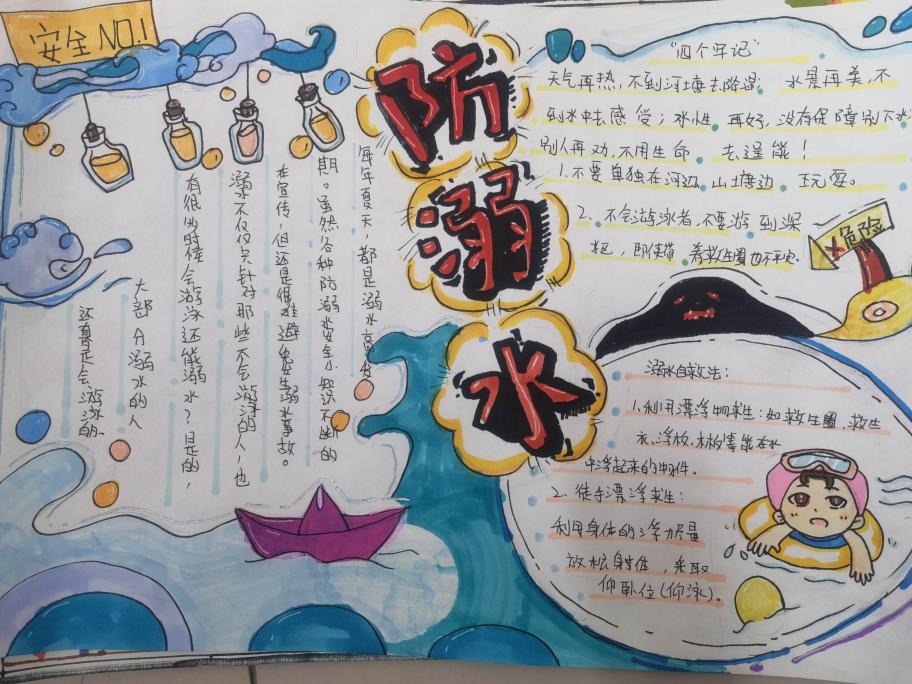 安全NO.1
防溺水
每年夏天，都是溺水高发
期。虽然各种防溺水安全知识不断的
在宣传，但还是很难避免发生溺水事故。
溺水不仅仅只针对那些不会游泳的人，也
有很多时候会游泳还能溺水？是的，
大部分溺水的人
还真是会游泳的
“四个牢记”
天气再热，不到河塘去降温； 水景再美，不
到水中去感受；水性 再好，没有保障别下水
别人再劝，不用生命 去逞能！
1.不要单独在河边、山塘边 玩耍。
2、不会游泳者，不要游 到深
，即使 着救生圈也不
危险
溺水自救法：
1.利用漂浮物求生：如救生圈、救生
衣、浮板、木板等能在水
中浮起来的物件。
2.徒手漂浮求生：
利用身体的浮力尽量
放松身体，采取
仰卧位(仰泳)。